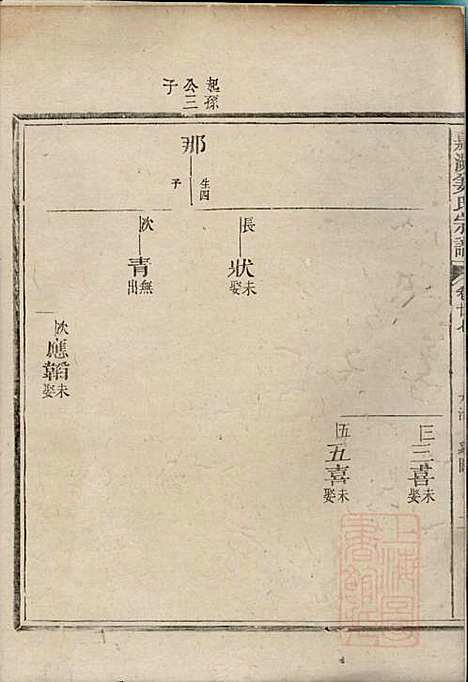 起孫
公三
子
三
三喜
未娶
五
五喜
未娶
那
生四
子
長
狀
未娶
次
青
無出
次
應韜
未娶
氏宗譜
上海圖書館藏